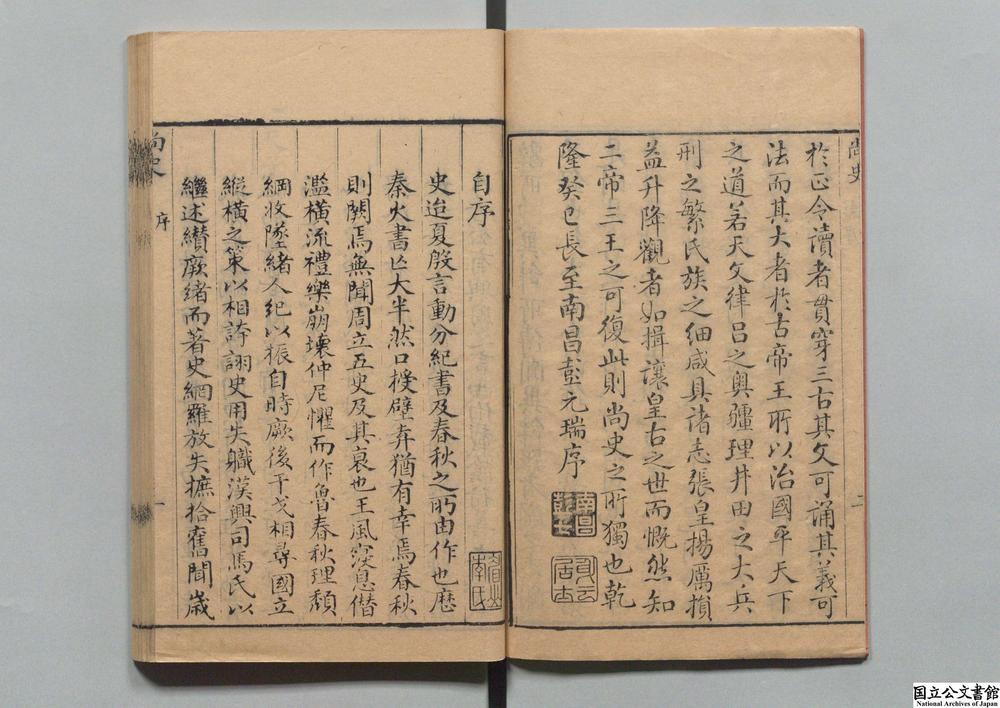 尚史
二
於正令讀者貫穿三古其文可誦其義可
法而其大者於古帝王所以治國平天下
之道若天文律呂之奧疆理井田之大兵
刑之繁氏族之細咸具諸志張皇揚厲損
益升降觀者如揖讓皇古之世而慨然知
二帝三王之可復此則尚史之所獨也乾
隆癸巳長至南昌彭元瑞序
自序
史迨夏殷言動分紀書及春秋之所由作也歷
秦火書亡大半然口授壁弆猶有幸焉春秋
則闕焉無聞周立五史及其衰也王風寖息僭
濫橫流禮樂崩壞仲尼懼而作魯春秋理頹
綱收墜緒人紀以振自時厥後干戈相尋國立
縱橫之策以相誇詡史用失職漢興司馬氏以
繼述纘厥緒而著史網羅放失摭拾舊聞歲
尚史
序
一
国立公文書館
National Archives of Japan